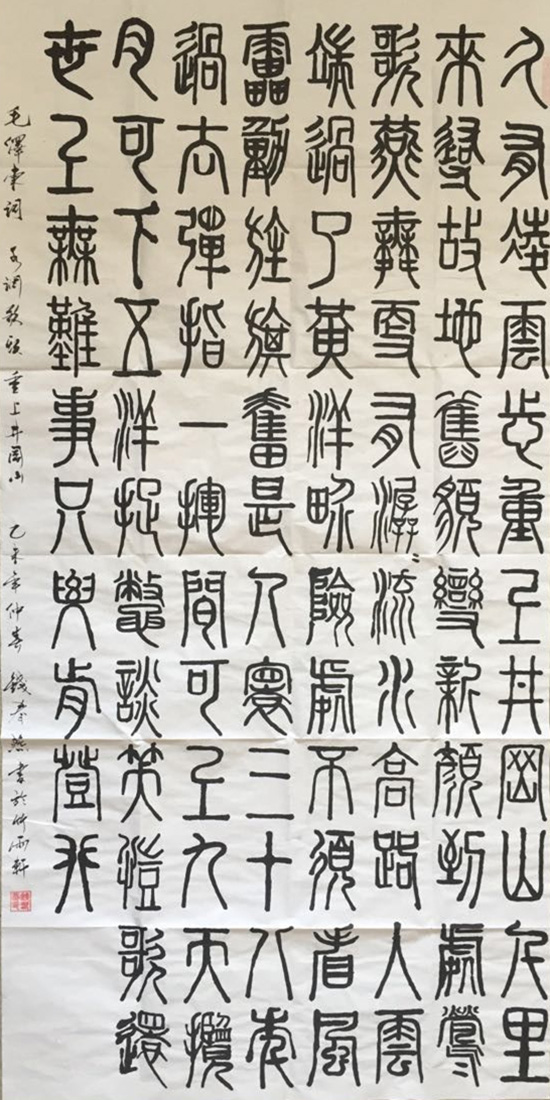 久有凌雲志重上井岡山千里
來尋故地舊貌變新顏到處鶯〻
歌燕舞更有潺〻流水高路入雲
端過了黃洋界險處不須看風
雷動旌旗奮是人寰三十八年
過去彈指一揮間可上九天攬
月可下五洋捉鱉談笑凱歌還
世上無難事只要肯登攀
毛澤東詞 水调歌頭 重上井岡山 乙未年仲春 錢書於竹雨軒